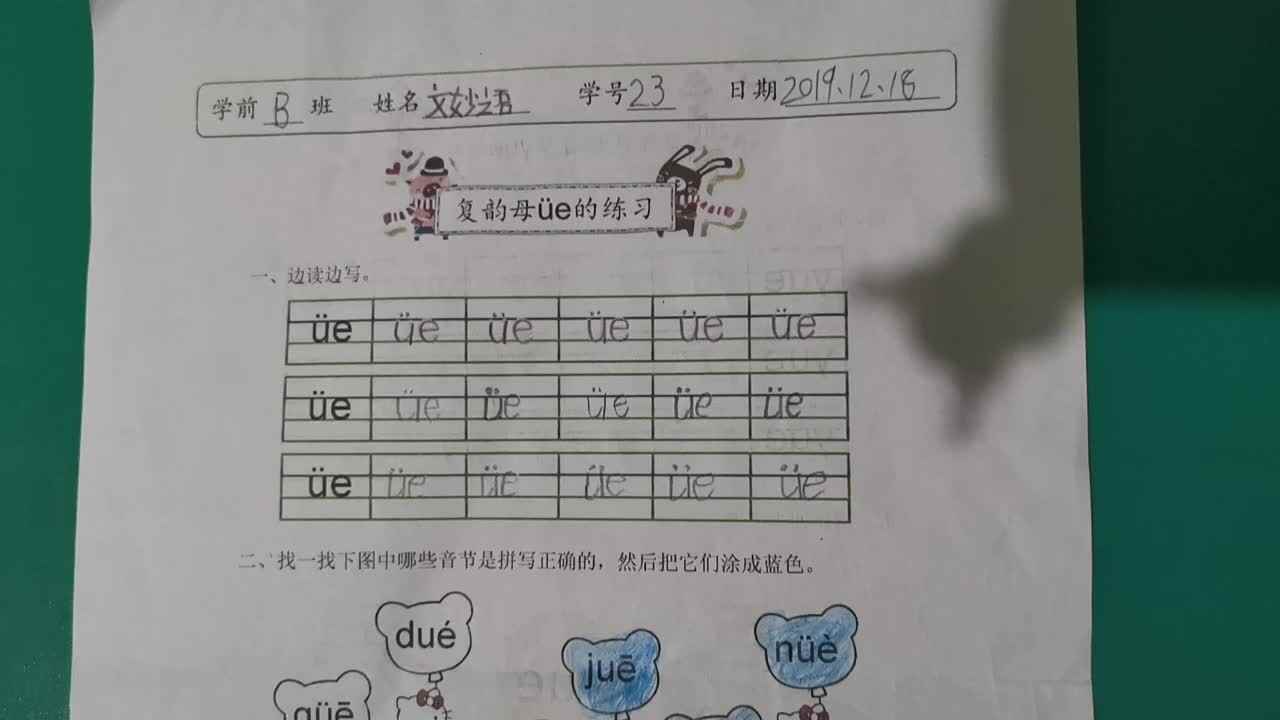 学前 B 班 姓名 学号 23 日期 2019.12.18
复韵母üe的练习
一、边读边写。
üe üe üe üe üe üe
üe üe üe üe üe üe
üe üe üe üe üe üe
二、找一找下图中哪些音节是拼写正确的，然后把它们涂成蓝色。
dué juē nüè